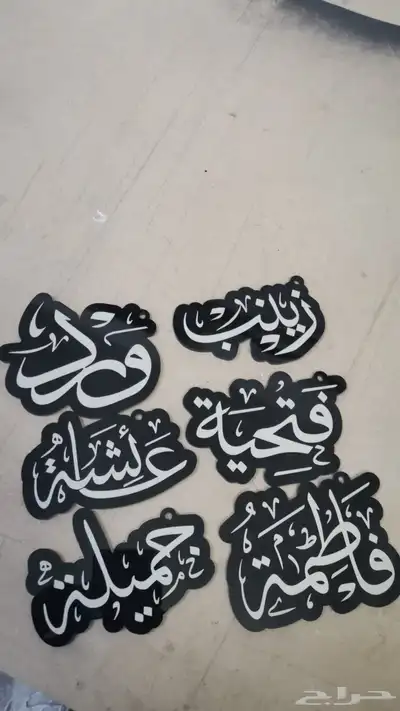 زينب
وَرد
فَتحِية
عَائشَة
فَاطِمَة
جَميلة
حراج